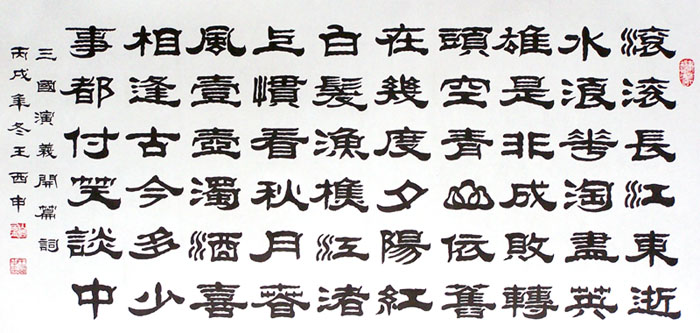 滾滾長江東逝
水浪花淘盡英
雄是非成敗轉
頭空青山依舊
在幾度夕陽紅
白髮漁樵江渚
上慣看秋月春
風壹壺濁酒喜
相逢古今多少
事都付笑談中
三國演義開篇詞
丙戌年冬王西申